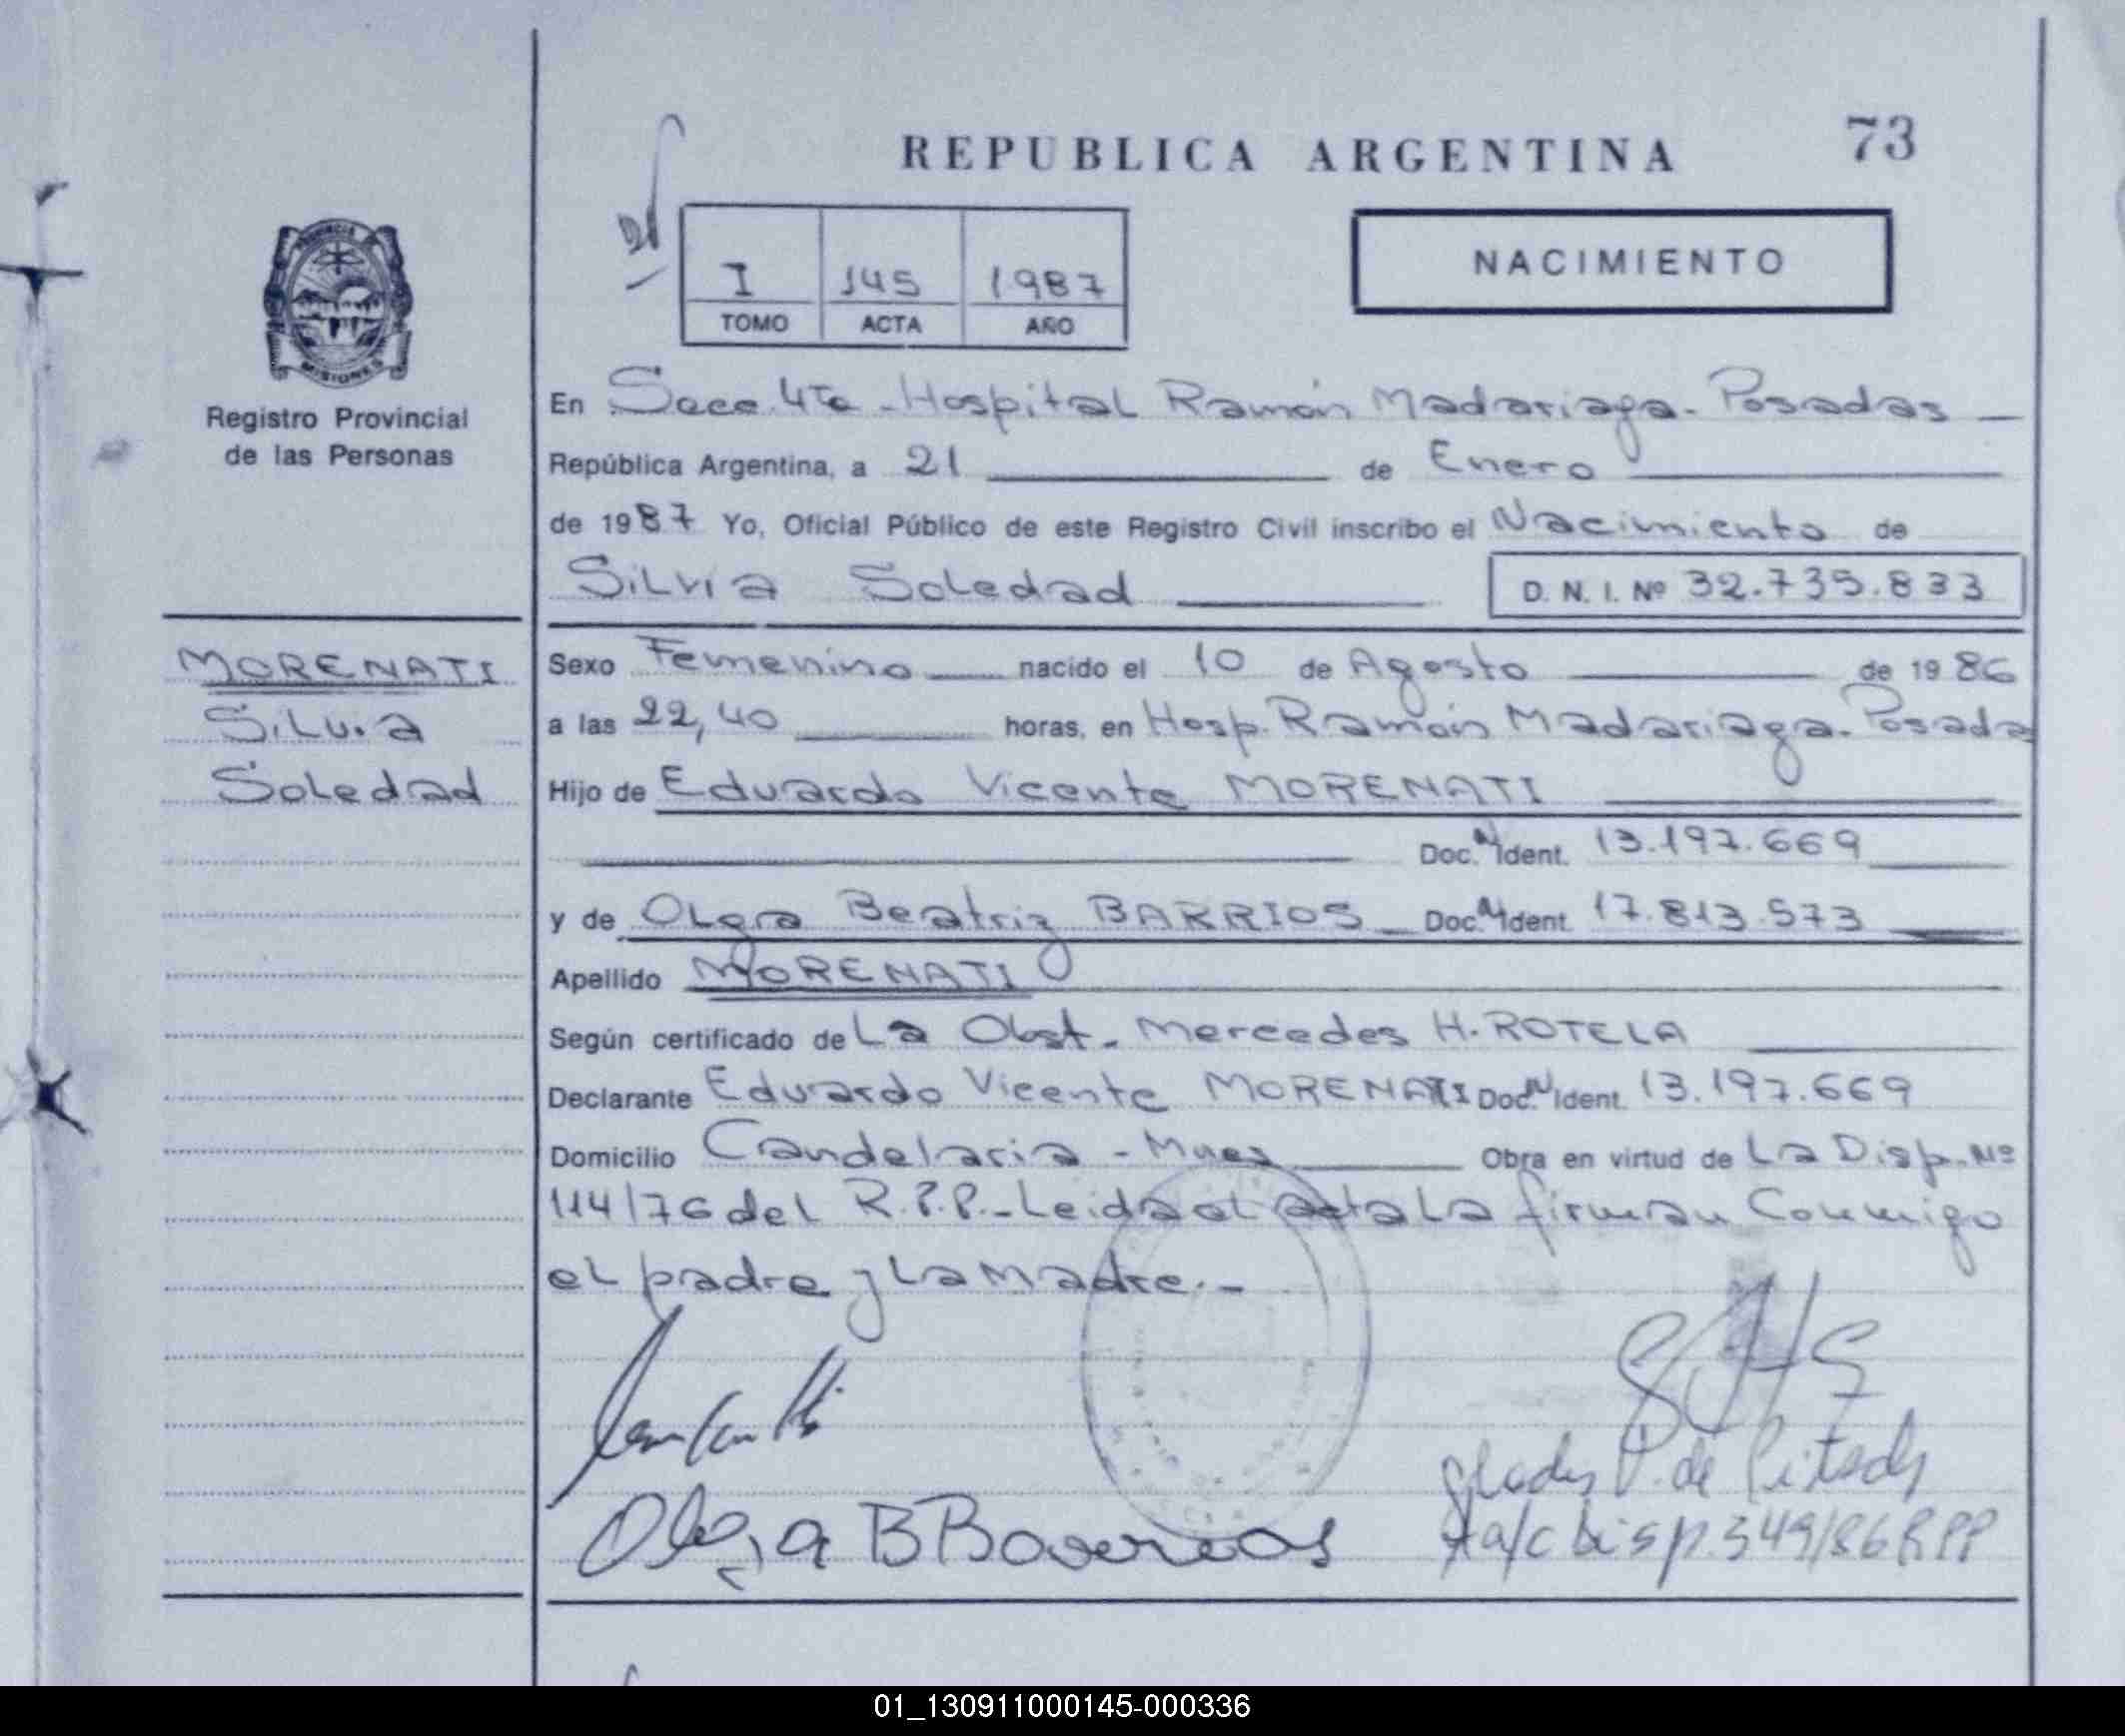 REPUBLICA ARGENTINA
73
I 145 1987
TOMO ACTA AÑO
NACIMIENTO
PROVINCIA
MISIONES
Registro Provincial
de las Personas
En Secc. 4ta - Hospital Ramón Madariaga - Posadas -
República Argentina, a 21 de Enero
de 1987 Yo, Oficial Público de este Registro Civil inscribo el Nacimiento de
Silvia Soledad D. N. I. Nº 32.735.833
MORENATI
Silvia
Soledad
Sexo Femenino nacido el 10 de Agosto de 1986
a las 22,40 horas, en Hosp. Ramón Madariaga - Posadas
Hijo de Eduardo Vicente MORENATI
Doc. N Ident. 13.197.669
y de Olga Beatriz BARRIOS - Doc. N Ident. 17.813.573
Apellido MORENATI
Según certificado de La Obst. Mercedes H. ROTELA
Declarante Eduardo Vicente MORENATI Doc. N Ident. 13.197.669
Domicilio Candelaria - Mnes Obra en virtud de La Disp. Nº
114/76 del R.P.P. - Leida el acta La firman Conmigo
el padre y La Madre. -
Olga B Barrios
Gladys V. de
a/c Disp. 349/86 RPP
01_130911000145-000336